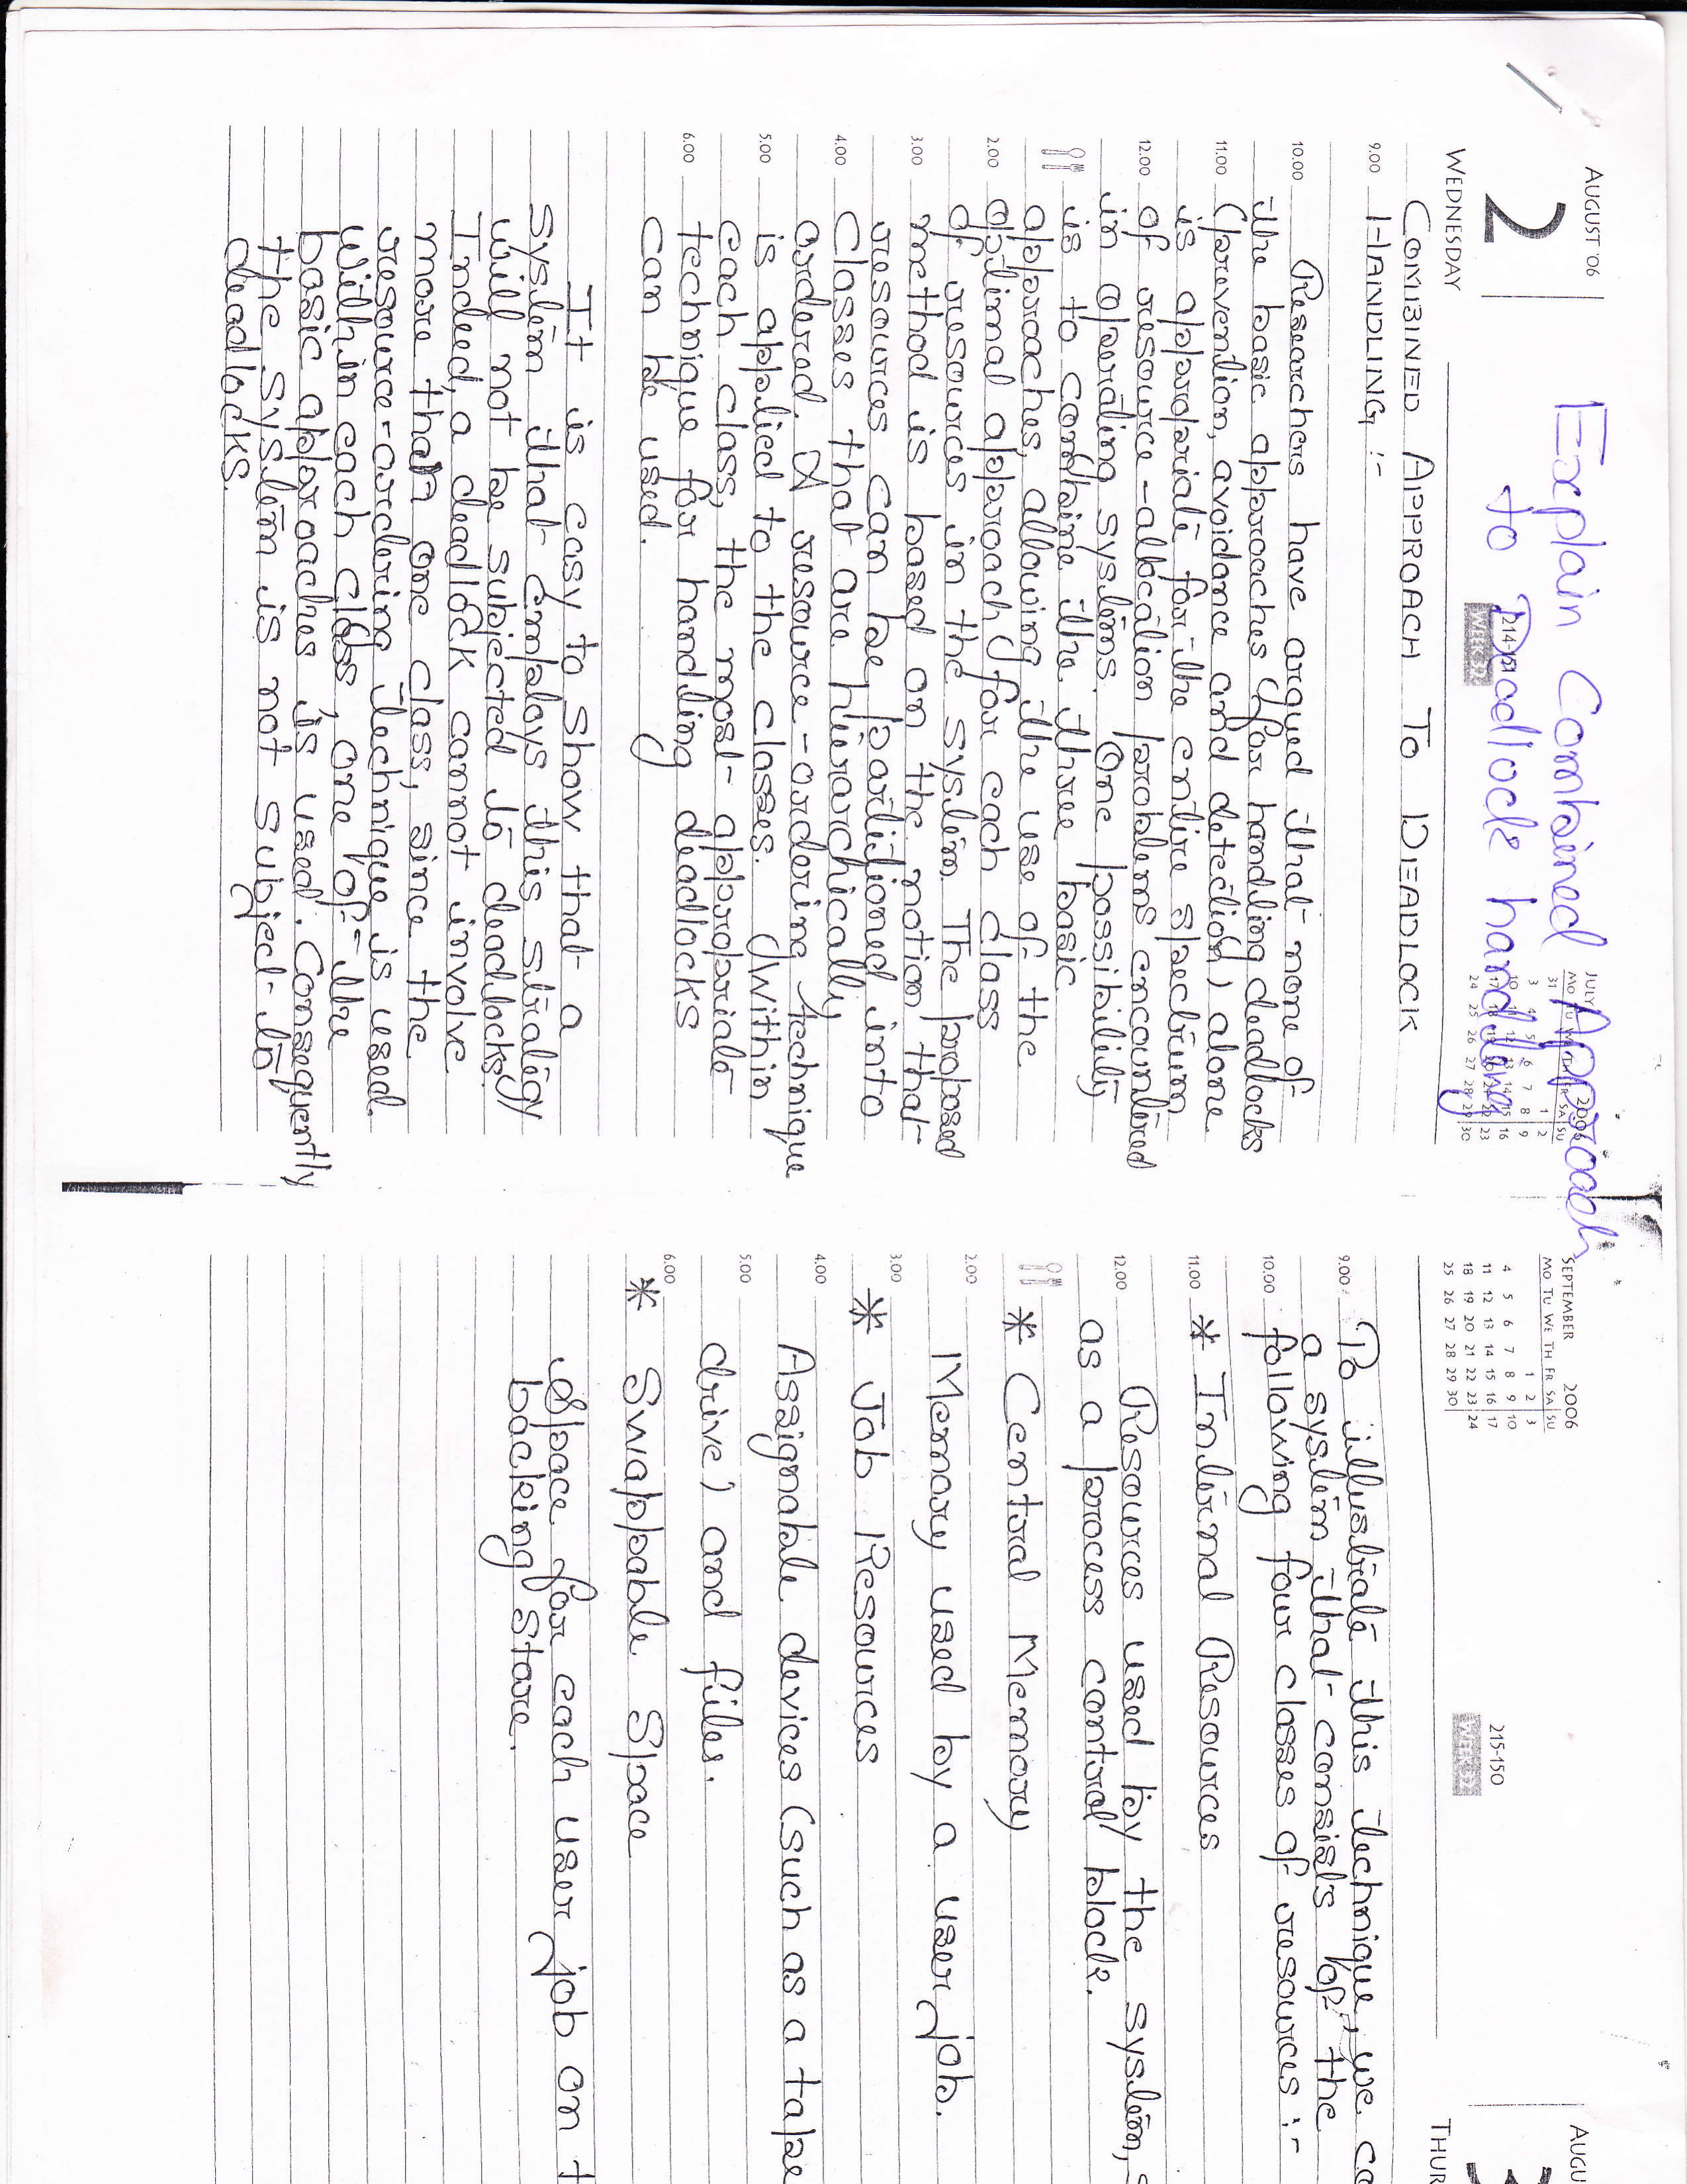 AUGUST '06
2
WEDNESDAY
Explain Combined Approach
to Deadlock handling
214-151
WEEK
JULY 2006
MO TU WE TH FR SA SU
31 1 2
3 4 5 6 7 8 9
10 11 12 13 14 15 16
17 18 19 20 21 22 23
24 25 26 27 28 29 30
COMBINED APPROACH TO DEADLOCK
9.00 HANDLING :-
10.00 Researchers have argued that none of
the basic approaches for handling deadlocks
11.00 (prevention, avoidance and detection) alone
is appropriate for the entire spectrum
12.00 of resource-allocation problems encountered
in operating systems. One possibility
is to combine the three basic
approaches, allowing the use of the
2.00 optimal approach for each class
of resources in the system. The proposed
3.00 method is based on the notion that
resources can be partitioned into
4.00 classes that are hierarchically
ordered. A resource-ordering technique
5.00 is applied to the classes. Within
each class, the most appropriate
6.00 technique for handling deadlocks
can be used.
It is easy to show that a
system that employs this strategy
will not be subjected to deadlocks.
Indeed, a deadlock cannot involve
more than one class, since the
resource-ordering technique is used.
Within each class, one of the
basic approaches is used. Consequently
the system is not subject to
deadlocks.
SEPTEMBER 2006
MO TU WE TH FR SA SU
1 2 3
4 5 6 7 8 9 10
11 12 13 14 15 16 17
18 19 20 21 22 23 24
25 26 27 28 29 30
215-150
WEEK
AUGU
3
THUR
9.00 To illustrate this technique, we co
a system that consists of the
10.00 following four classes of resources :-
11.00 * Internal Resources
12.00 Resources used by the system, s
as a process control block.
* Central Memory
2.00 Memory used by a user job.
3.00 * Job Resources
4.00 Assignable devices (such as a tape
5.00 drive) and files.
6.00 * Swappable Space
Space for each user job on t
backing store.